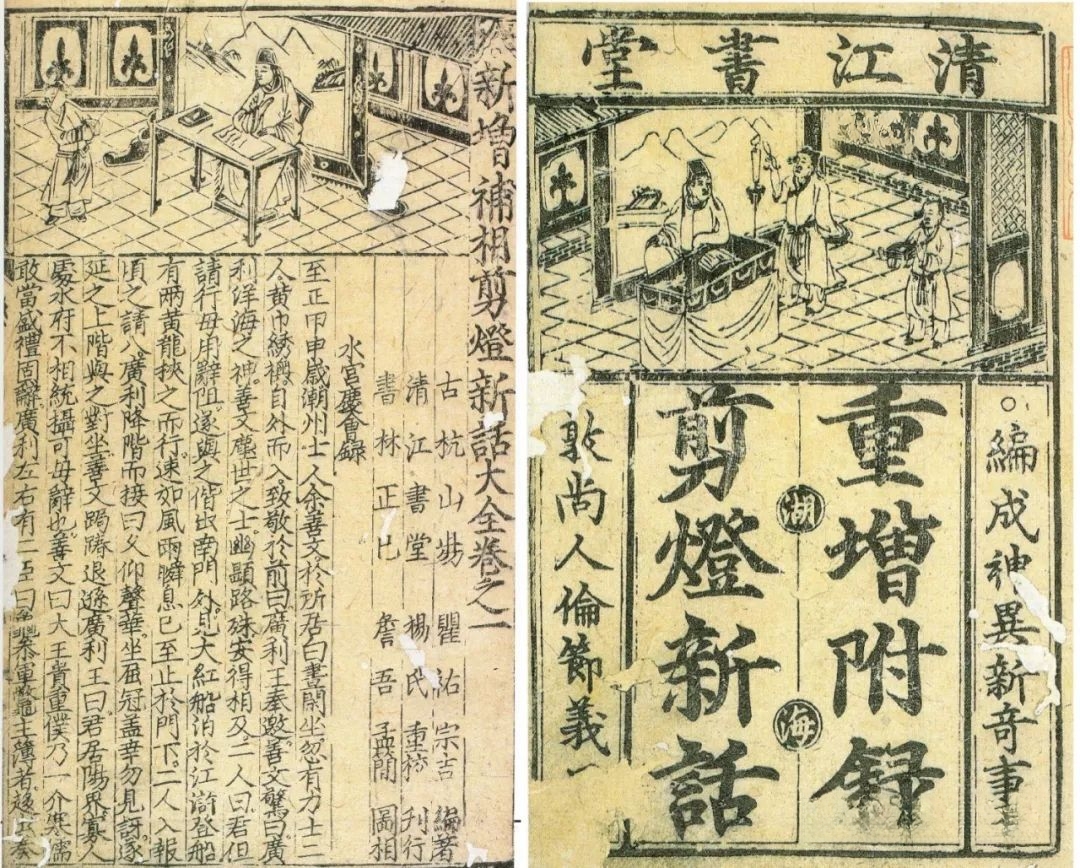 清江書堂
編成神異新奇事
重增附錄
湖海
剪燈新話
敦尚人倫節義
新增補相剪燈新話大全卷之一
古杭山陽 瞿祐宗吉 編著
清江書堂 楊氏重校刊行
書林正巳 詹吾孟簡圖相
水宮慶會錄
至正甲申歲潮州士人余善文於所居白晝閑坐忽有力士二
人黃巾綉襖自外而入致敬於前曰廣利王奉邀善文驚曰廣
利洋海之神善文塵世之士幽顯路殊安得相及二人曰君但
請行毋用辭阻遂與之偕出南門外見大紅船泊於江滸登船
有兩黃龍挾之而行速如風雨瞬息已至止於門下二人入報
頃之請入廣利降階而接曰久仰聲華坐屈冠蓋幸勿見訝遂
延之上階與之對坐善文跼蹐退遜廣利王曰君居陽界寡人
處水府不相統攝可毋辭也善文曰大王貴重僕乃一介寒儒
敢當盛禮固辭廣利左右有二臣曰黿參軍鱉主簿者趨出奏